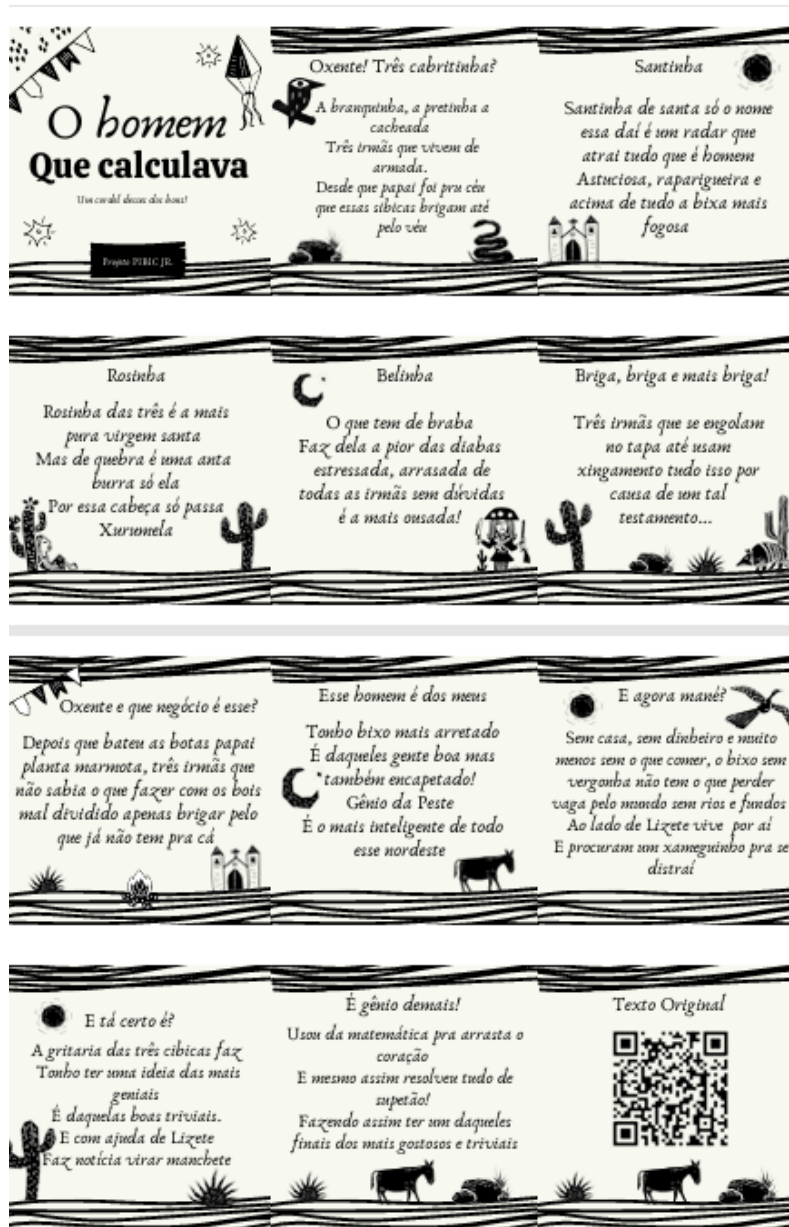 O homem
Que calculava
Um cordel desses dos bons!
Projeto PIBIC JR.
Oxente! Três cabritinha?
A branquinha, a pretinha a
cacheada
Três irmãs que vivem de
armada.
Desde que papai foi pru céu
que essas sibicas brigam até
pelo véu
Santinha
Santinha de santa só o nome
essa daí é um radar que
atrai tudo que é homem
Astuciosa, raparigueira e
acima de tudo a bixa mais
fogosa
Rosinha
Rosinha das três é a mais
pura virgem santa
Mas de quebra é uma anta
burra só ela
Por essa cabeça só passa
Xurumela
Belinha
O que tem de braba
Faz dela a pior das diabas
estressada, arrasada de
todas as irmãs sem dúvidas
é a mais ousada!
Briga, briga e mais briga!
Três irmãs que se engolam
no tapa até usam
xingamento tudo isso por
causa de um tal
testamento...
Oxente e que negócio é esse?
Depois que bateu as botas papai
planta marmota, três irmãs que
não sabia o que fazer com os bois
mal dividido apenas brigar pelo
que já não tem pra cá
Esse homem é dos meus
Tonho bixo mais arretado
É daqueles gente boa mas
também encapetado!
Gênio da Peste
É o mais inteligente de todo
esse nordeste
E agora mané?
Sem casa, sem dinheiro e muito
menos sem o que comer, o bixo sem
vergonha não tem o que perder
vaga pelo mundo sem rios e fundos
Ao lado de Lizete vive por aí
E procuram um xameguinho pra se
distraí
E tá certo é?
A gritaria das três cibicas faz
Tonho ter uma ideia das mais
geniais
É daquelas boas triviais.
E com ajuda de Lizete
Faz notícia virar manchete
É gênio demais!
Usou da matemática pra arrasta o
coração
E mesmo assim resolveu tudo de
supetão!
Fazendo assim ter um daqueles
finais dos mais gostosos e triviais
Texto Original